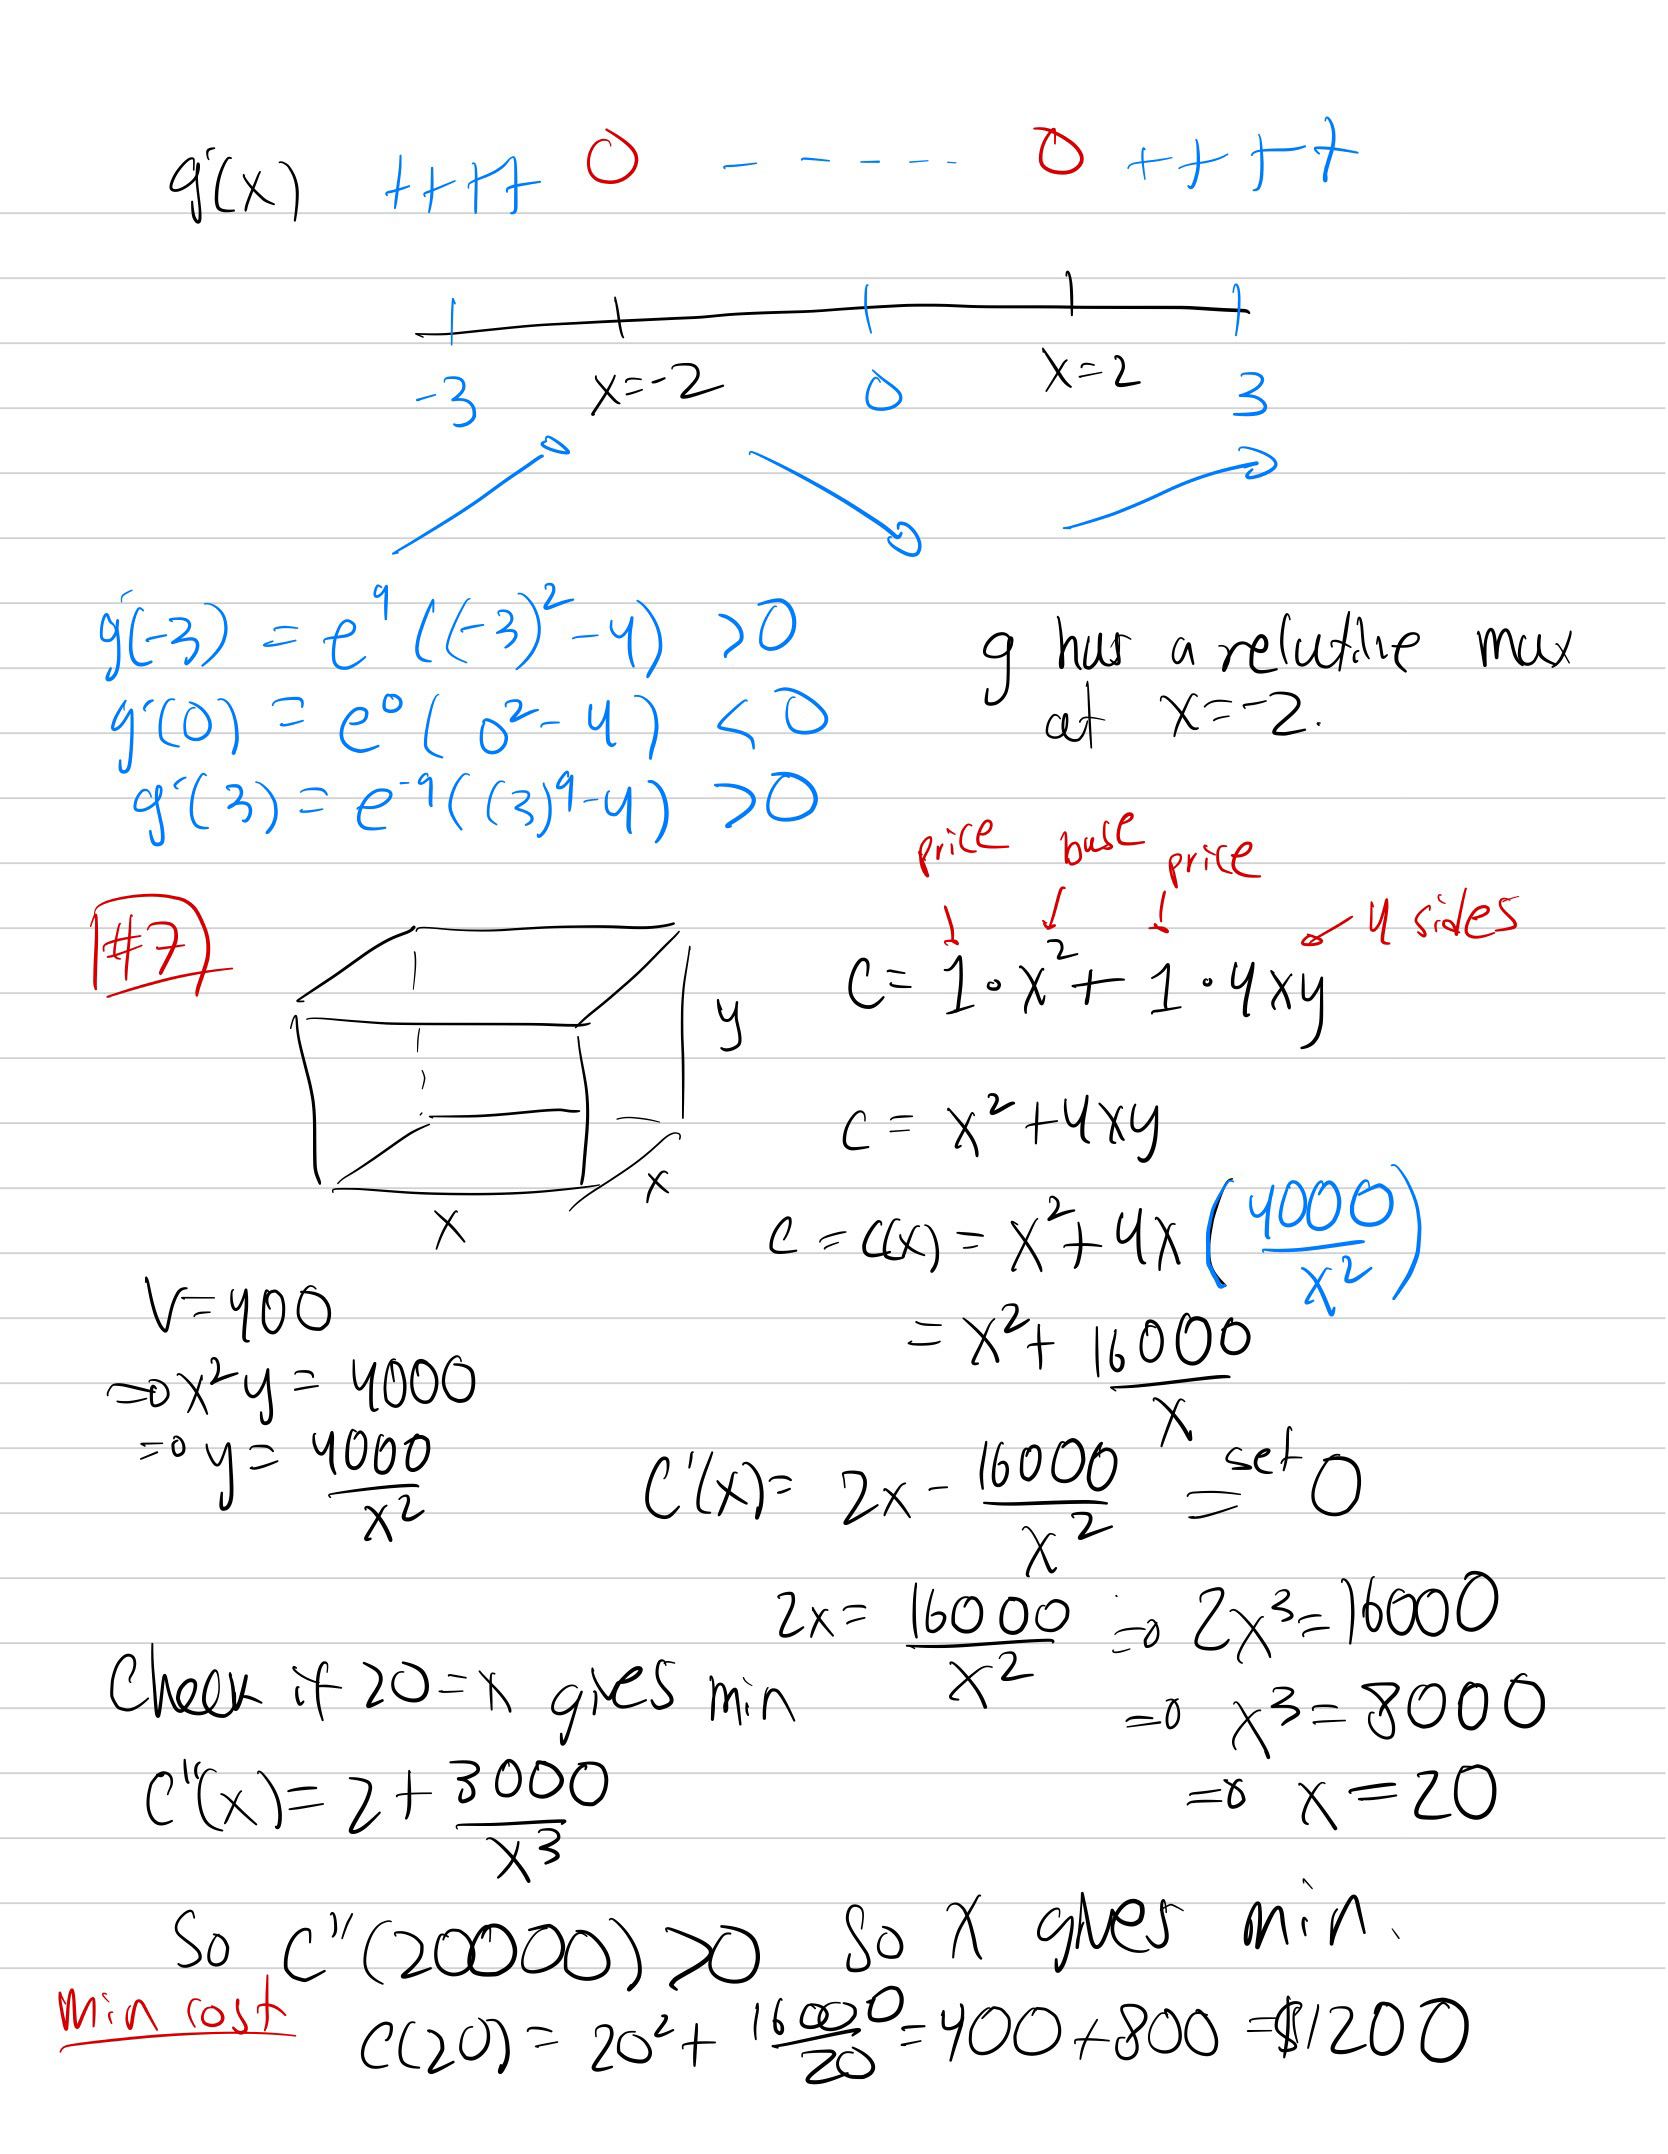 g'(x) ++++ 0 - - - - - 0 ++++
-3 x=-2 0 x=2 3
g'(-3) = e^9 ((-3)^2 - 4) >0
g'(0) = e^0 (0^2 - 4) <0
g'(3) = e^-9 ((3)^9 - 4) >0
g has a relative max
at x=-2.
#7
price base price
4 sides
C = 1·x^2 + 1·4xy
y
x
x
C = x^2 + 4xy
C = C(x) = x^2 + 4x (4000/x^2)
= x^2 + 16000/x
V=400
⇒ x^2 y = 4000
⇒ y = 4000/x^2
C'(x) = 2x - 16000/x^2 set = 0
2x = 16000/x^2 ⇒ 2x^3 = 16000
⇒ x^3 = 8000
⇒ x = 20
Check if 20=x gives min
C''(x) = 2 + 3000/x^3
So C''(20000) >0 So x gives min.
min cost
C(20) = 20^2 + 16000/20 = 400 + 800 = $1200